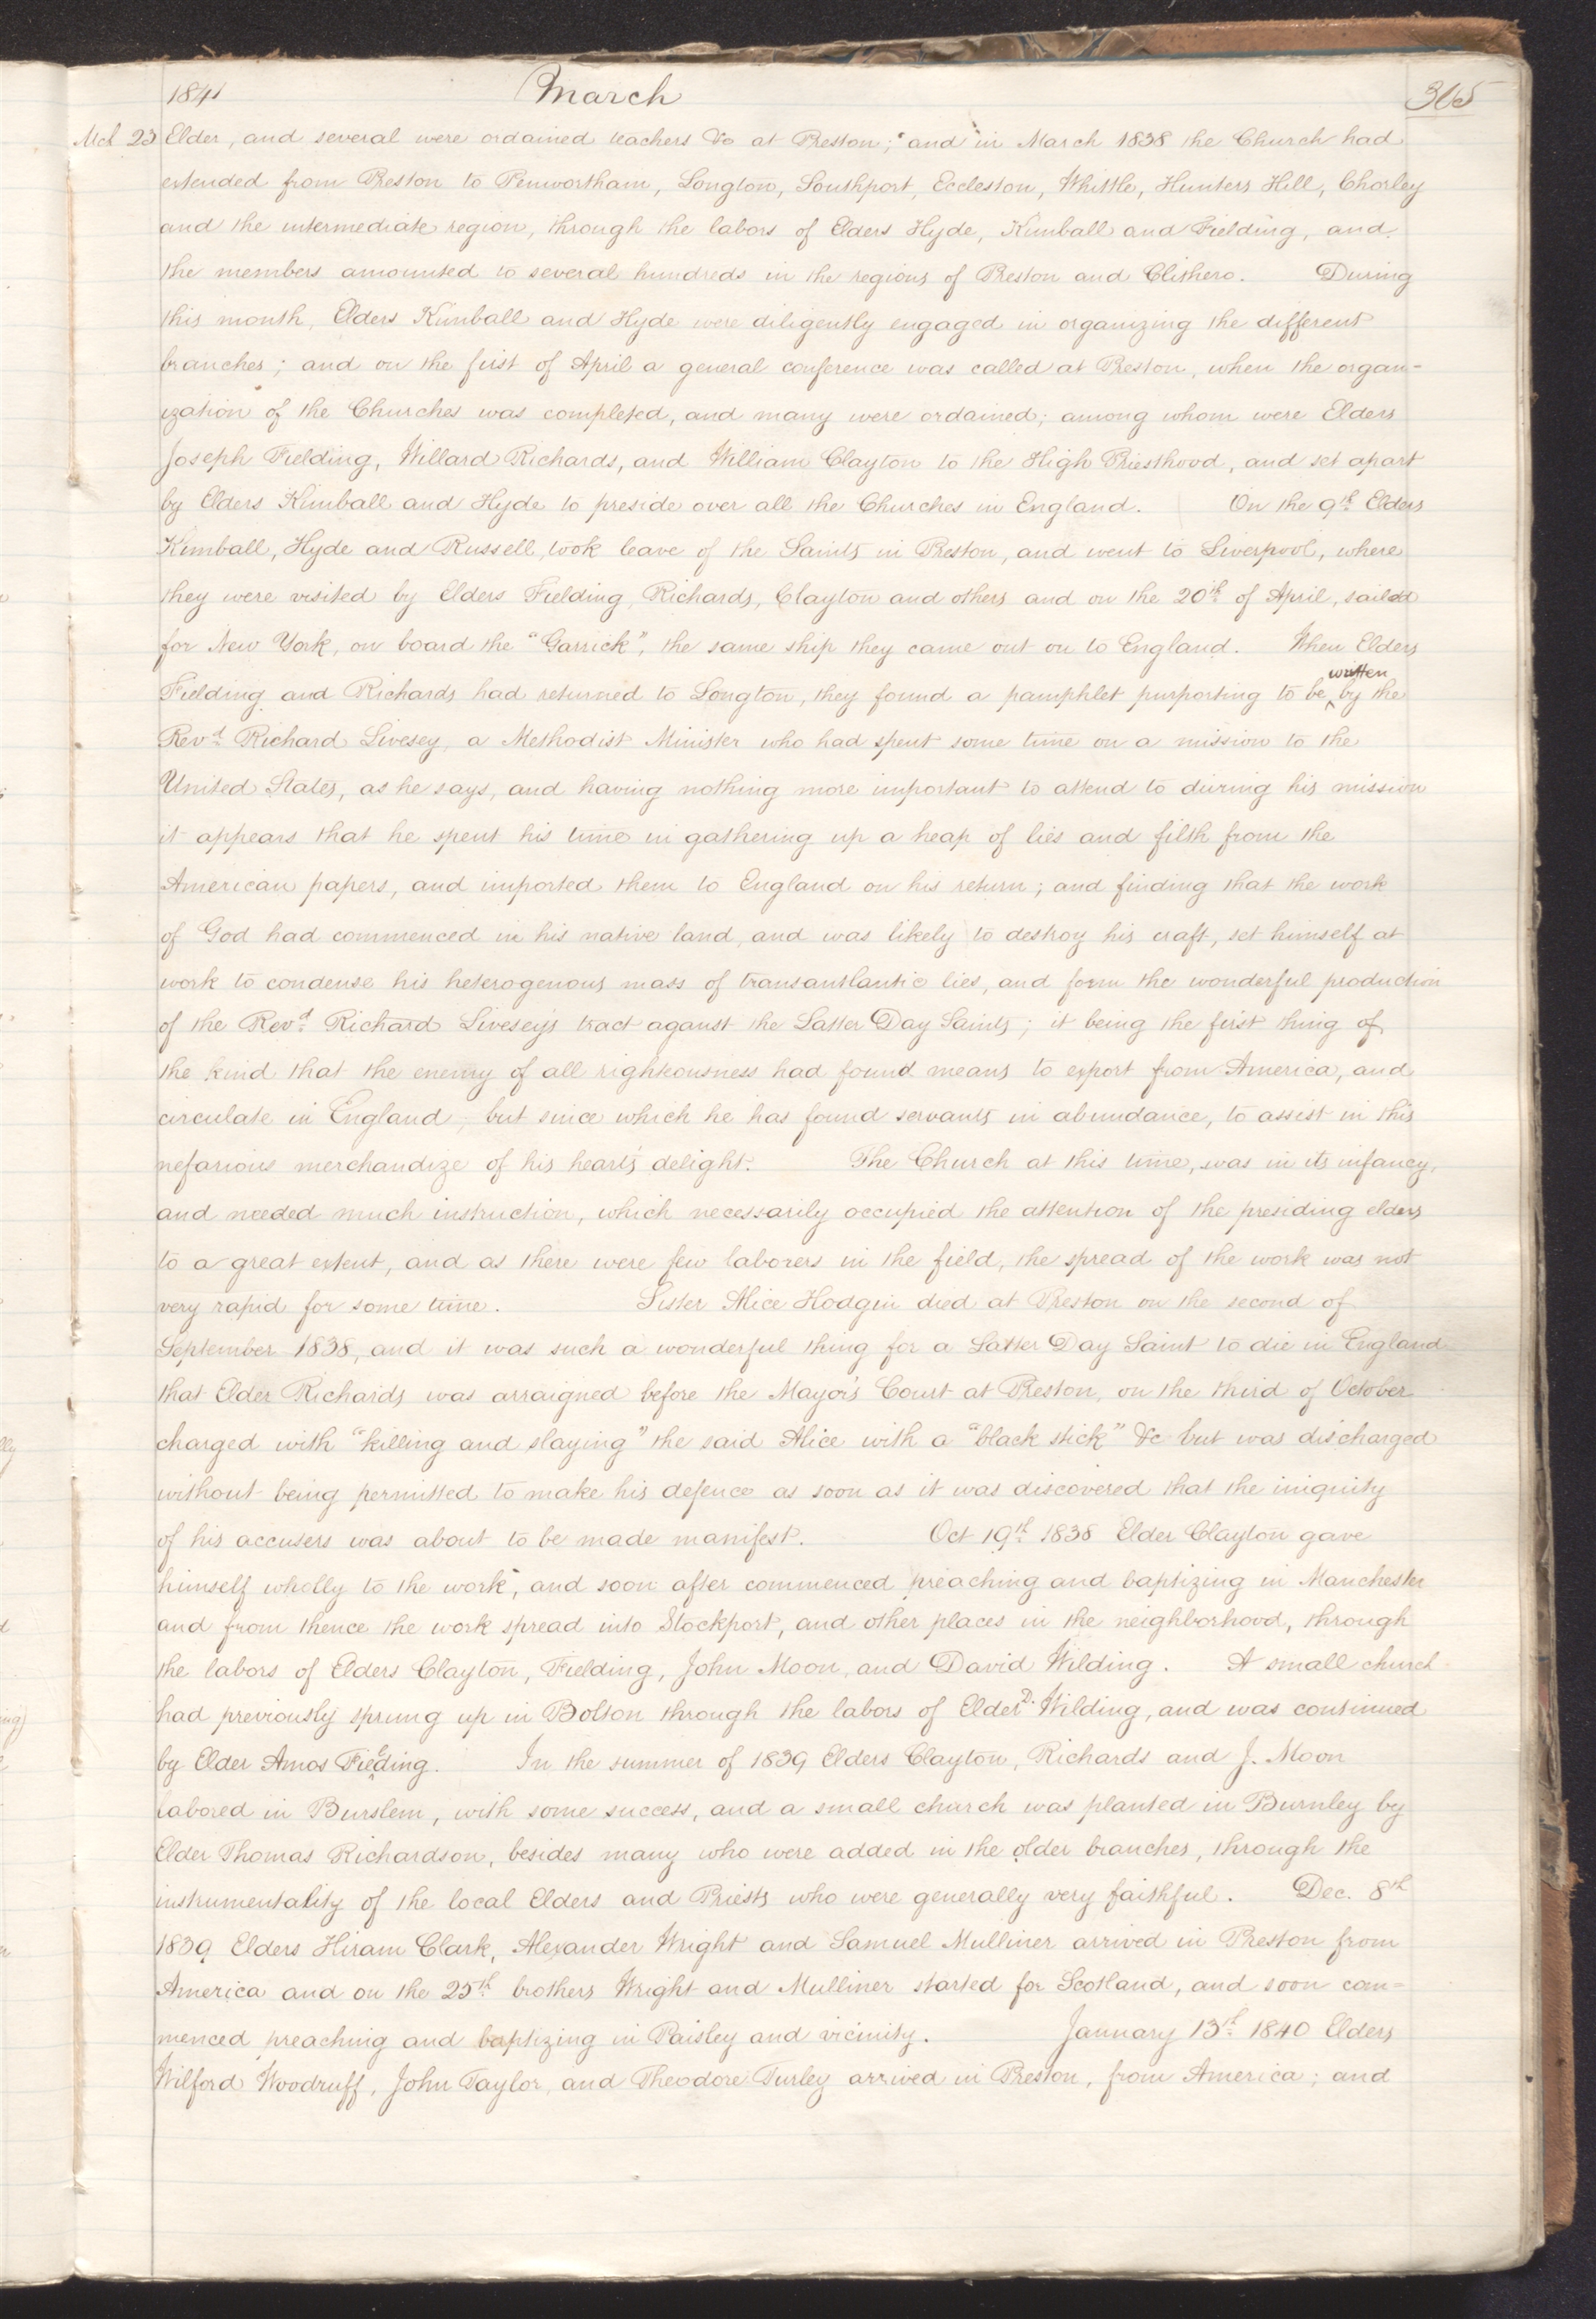 1841 March 365
Mch 23 Elder, and several were ordained teachers &c at Preston; and in March 1838 the Church had
extended from Preston to Penwortham, Longton, Southport, Eccleston, Whittle, Hunters Hill, Chorley
and the intermediate region, through the labors of Elders Hyde, Kimball and Fielding, and
the members amounted to several hundreds in the regions of Preston and Clithero. During
this month, Elders Kimball and Hyde were diligently engaged in organizing the different
branches; and on the first of April a general conference was called at Preston, when the organ=
ization of the Churches was completed, and many were ordained; among whom were Elders
Joseph Fielding, Willard Richards, and William Clayton to the High Priesthood, and set apart
by Elders Kimball and Hyde to preside over all the Churches in England. On the 9th Elders
Kimball, Hyde and Russell, took leave of the Saints in Preston, and went to Liverpool, where
they were visited by Elders Fielding, Richards, Clayton and others and on the 20th of April, sailed
for New York, on board the "Garrick", the same ship they came out on to England. When Elders
Fielding and Richards had returned to Longton, they found a pamphlet purporting to be written by the
Revd Richard Livesey, a Methodist Minister who had spent some time on a mission to the
United States, as he says, and having nothing more important to attend to during his mission
it appears that he spent his time in gathering up a heap of lies and filth from the
American papers, and imported them to England on his return; and finding that the work
of God had commenced in his native land, and was likely to destroy his craft, set himself at
work to condense his heterogenous mass of transantlantic lies, and form the wonderful production
of the Revd Richard Livesey's tract aganst the Latter Day Saints; it being the first thing of
the kind that the enemy of all righteousness had found means to export from America, and
circulate in England, but since which he has found servants in abundance, to assist in this
nefarious merchandize of his heart's delight. The Church at this time, was in its infancy,
and needed much instruction, which necessarily occupied the attention of the presiding elders
to a great extent, and as there were few laborers in the field, the spread of the work was not
very rapid for some time. Sister Alice Hodgin died at Preston on the second of
September 1838, and it was such a wonderful thing for a Latter Day Saint to die in England
that Elder Richards was arraigned before the Mayor's Court at Preston, on the third of October
charged with "killing and slaying" the said Alice with a "black stick" &c but was discharged
without being permitted to make his defence as soon as it was discovered that the iniquity
of his accusers was about to be made manifest. Oct 19th 1838 Elder Clayton gave
himself wholly to the work, and soon after commenced preaching and baptizing in Manchester
and from thence the work spread into Stockport, and other places in the neighborhood, through
the labors of Elders Clayton, Fielding, John Moon, and David Wilding. A small church
had previously sprung up in Bolton through the labors of Elder D. Wilding, and was continued
by Elder Amos Fielding. In the summer of 1839 Elders Clayton, Richards and J. Moon
labored in Burslem, with some success, and a small church was planted in Burnley by
Elder Thomas Richardson, besides many who were added in the older branches, through the
instrumentality of the local Elders and Priests who were generally very faithful. Dec. 8th
1839 Elders Hiram Clark, Alexander Wright and Samuel Mulliner arrived in Preston from
America and on the 25th brothers Wright and Mulliner started for Scotland, and soon com=
menced preaching and baptizing in Paisley and vicinity. January 13th 1840 Elders
Wilford Woodruff, John Taylor, and Theodore Turley arrived in Preston, from America; and